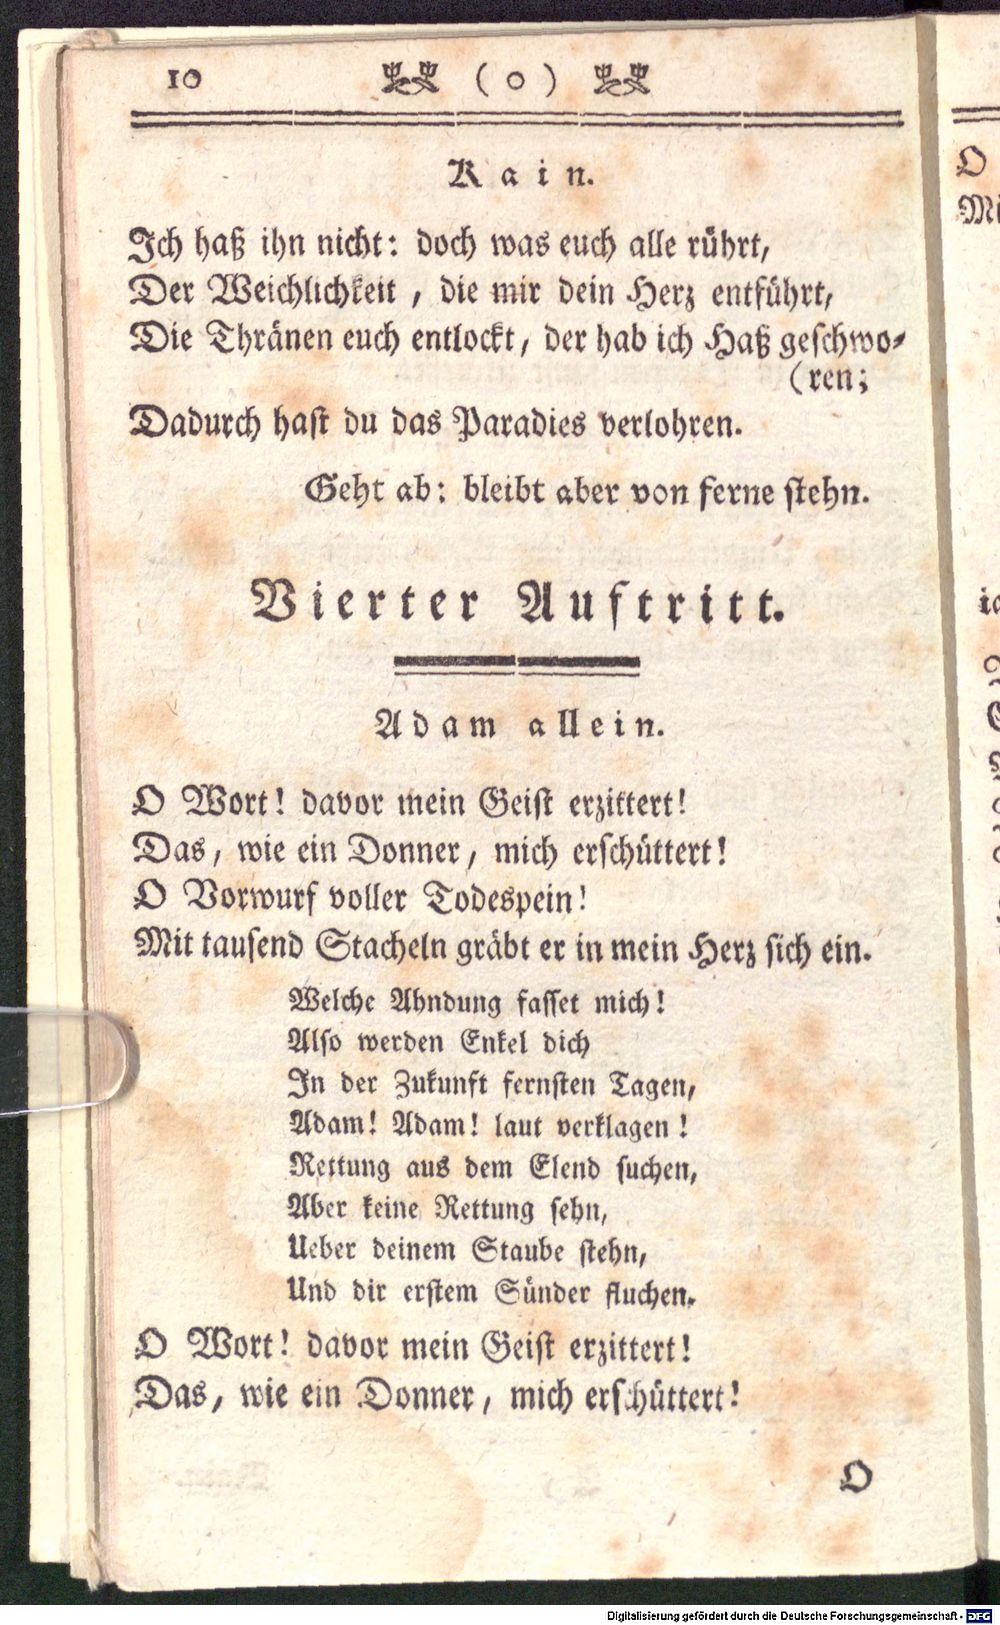 10 ( o )
Kain.
Ich haß ihn nicht: doch was euch alle rührt,
Der Weichlichkeit, die mir dein Herz entführt,
Die Thränen euch entlockt, der hab ich Haß geschwo-
(ren;
Dadurch hast du das Paradies verlohren.
Geht ab: bleibt aber von ferne stehn.
Vierter Auftritt.
Adam allein.
O Wort! davor mein Geist erzittert!
Das, wie ein Donner, mich erschüttert!
O Vorwurf voller Todespein!
Mit tausend Stacheln gräbt er in mein Herz sich ein.
Welche Ahndung fasset mich!
Also werden Enkel dich
In der Zukunft fernsten Tagen,
Adam! Adam! laut verklagen!
Rettung aus dem Elend suchen,
Aber keine Rettung sehn,
Ueber deinem Staube stehn,
Und dir erstem Sünder fluchen.
O Wort! davor mein Geist erzittert!
Das, wie ein Donner, mich erschüttert!
O
O
Mi
Digitalisierung gefördert durch die Deutsche Forschungsgemeinschaft - DFG